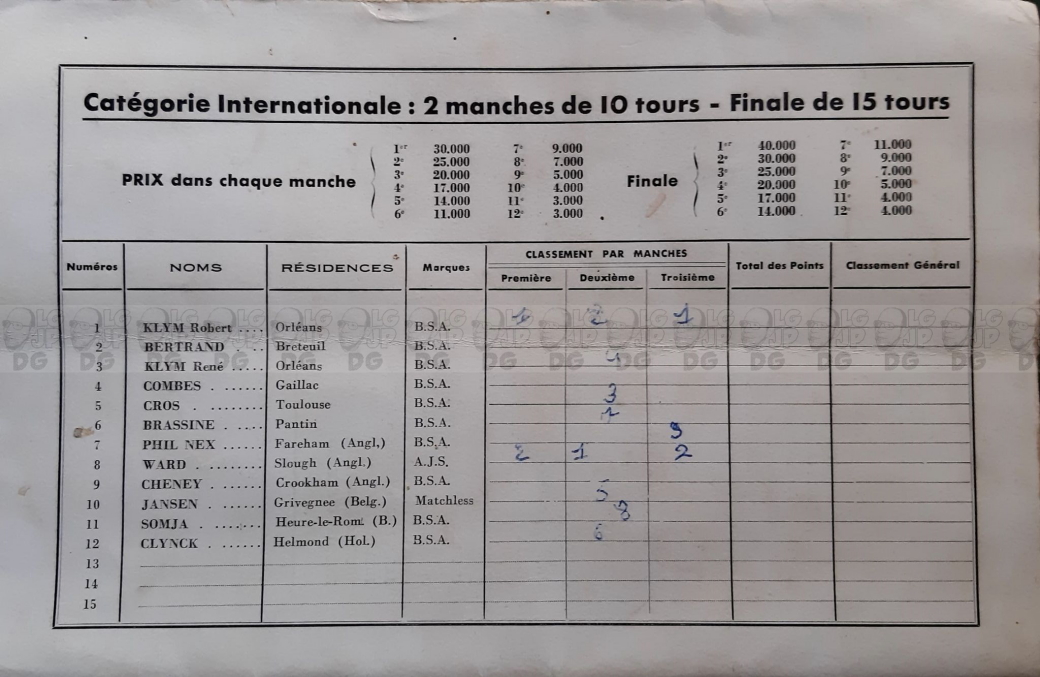 Catégorie Internationale : 2 manches de 10 tours - Finale de 15 tours
PRIX dans chaque manche
1er 30.000 7e 9.000
2e 25.000 8e 7.000
3e 20.000 9e 5.000
4e 17.000 10e 4.000
5e 14.000 11e 3.000
6e 11.000 12e 3.000
Finale
1er 40.000 7e 11.000
2e 30.000 8e 9.000
3e 25.000 9e 7.000
4e 20.000 10e 5.000
5e 17.000 11e 4.000
6e 14.000 12e 4.000
Numéros NOMS RÉSIDENCES Marques CLASSEMENT PAR MANCHES Total des Points Classement Général
Première Deuxième Troisième
1 KLYM Robert .... Orléans B.S.A. 1 2 1
2 BERTRAND ... Breteuil B.S.A.
3 KLYM René ..... Orléans B.S.A. 4
4 COMBES . ...... Gaillac B.S.A.
5 CROS . ........ Toulouse B.S.A. 3
6 BRASSINE . .... Pantin B.S.A. 7
7 PHIL NEX ...... Fareham (Angl,) B.S.A. 3
8 WARD . ........ Slough (Angl.) A.J.S. 2 1 2
9 CHENEY . ...... Crookham (Angl.) B.S.A.
10 JANSEN . ...... Grivegnee (Belg.) Matchless 5
11 SOMJA . ....... Heure-le-Rom. (B.) B.S.A. 8
12 CLYNCK . ...... Helmond (Hol.) B.S.A. 6
13
14
15
DG DG DG DG DG DG DG